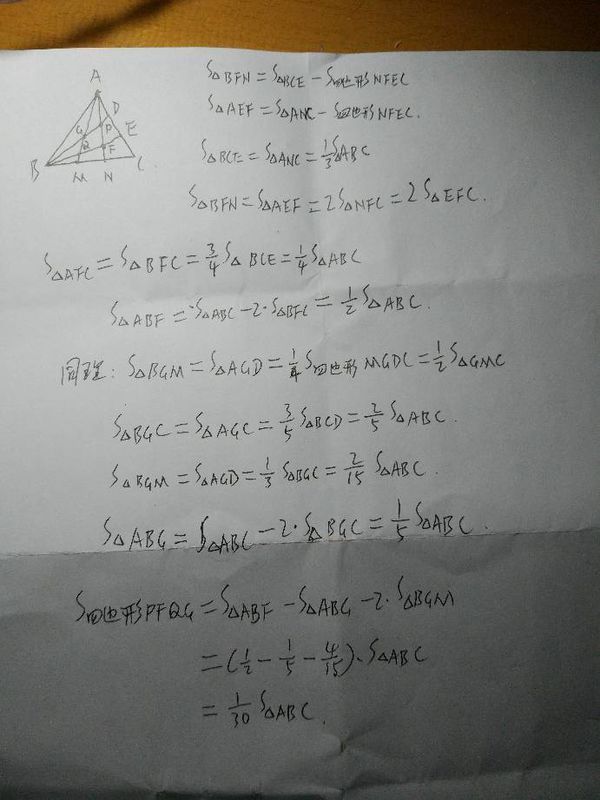 A
D
G P E
Q F
B M N C
S△BFN = S△BCE - S四边形NFEC
S△AEF = S△ANC - S四边形NFEC.
S△BCE = S△ANC = 1/3 S△ABC
S△BFN = S△AEF = 2S△NFC = 2S△EFC.
S△AFC = S△BFC = 3/4 S△BCE = 1/4 S△ABC
S△ABF = S△ABC - 2·S△BFC = 1/2 S△ABC.
同理: S△BGM = S△AGD = 1/4 S四边形MGDC = 1/2 S△GMC
S△BGC = S△AGC = 3/5 S△BCD = 2/5 S△ABC.
S△BGM = S△AGD = 1/3 S△BGC = 2/15 S△ABC.
S△ABG = S△ABC - 2·S△BGC = 1/5 S△ABC.
S四边形PFQG = S△ABF - S△ABG - 2·S△BGM
= (1/2 - 1/5 - 4/15)·S△ABC
= 1/30 S△ABC.